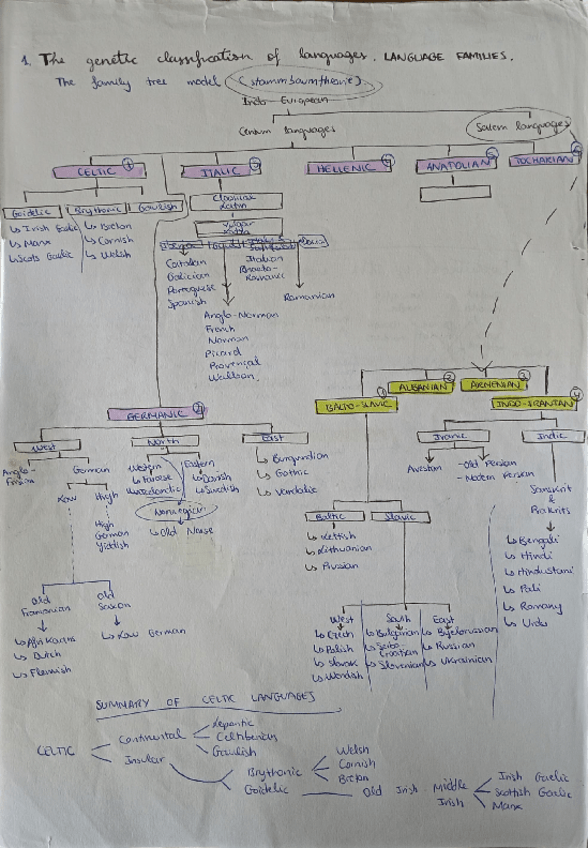 1. The genetic classification of languages. LANGUAGE FAMILIES.
The family tree model (stammbaumtheorie)
Indo-European
Centum languages
Satem languages
CELTIC
ITALIC
HELLENIC
ANATOLIAN
TOCHARIAN
Goidelic
Brythonic
Gaulish
Irish Gaelic
Manx
Scots Gaelic
Breton
Cornish
Welsh
Classical Latin
Vulgar
Catalan
Galician
Portuguese
Spanish
Anglo-Norman
French
Norman
Picard
Provencal
Walloon
Italian
Rhaeto-Romanic
Romanian
GERMANIC
West
North
East
Anglo-Frisian
German
Low
High
High German
Yiddish
Western
Faroese
Icelandic
Eastern
Danish
Swedish
Norwegian
Old Norse
Burgundian
Gothic
Vandalic
Old Franconian
Afrikaans
Dutch
Flemish
Old Saxon
Low German
BALTO-SLAVIC
ALBANIAN
ARMENIAN
INDO-IRANIAN
Baltic
Slavic
Lettish
Lithuanian
Prussian
West
Czech
Polish
Slovak
Wendish
South
Bulgarian
Serbo-Croatian
Slovenian
East
Byelorussian
Russian
Ukrainian
Iranic
Indic
Avestan
-Old Persian
-Modern Persian
Sanskrit & Prakrits
Bengali
Hindi
Hindustani
Pali
Romany
Urdu
SUMMARY OF CELTIC LANGUAGES
CELTIC
Continental
Lepontic
Celtiberian
Gaulish
Insular
Brythonic
Welsh
Cornish
Breton
Goidelic
Old Irish
Middle Irish
Irish Gaelic
Scottish Gaelic
Manx